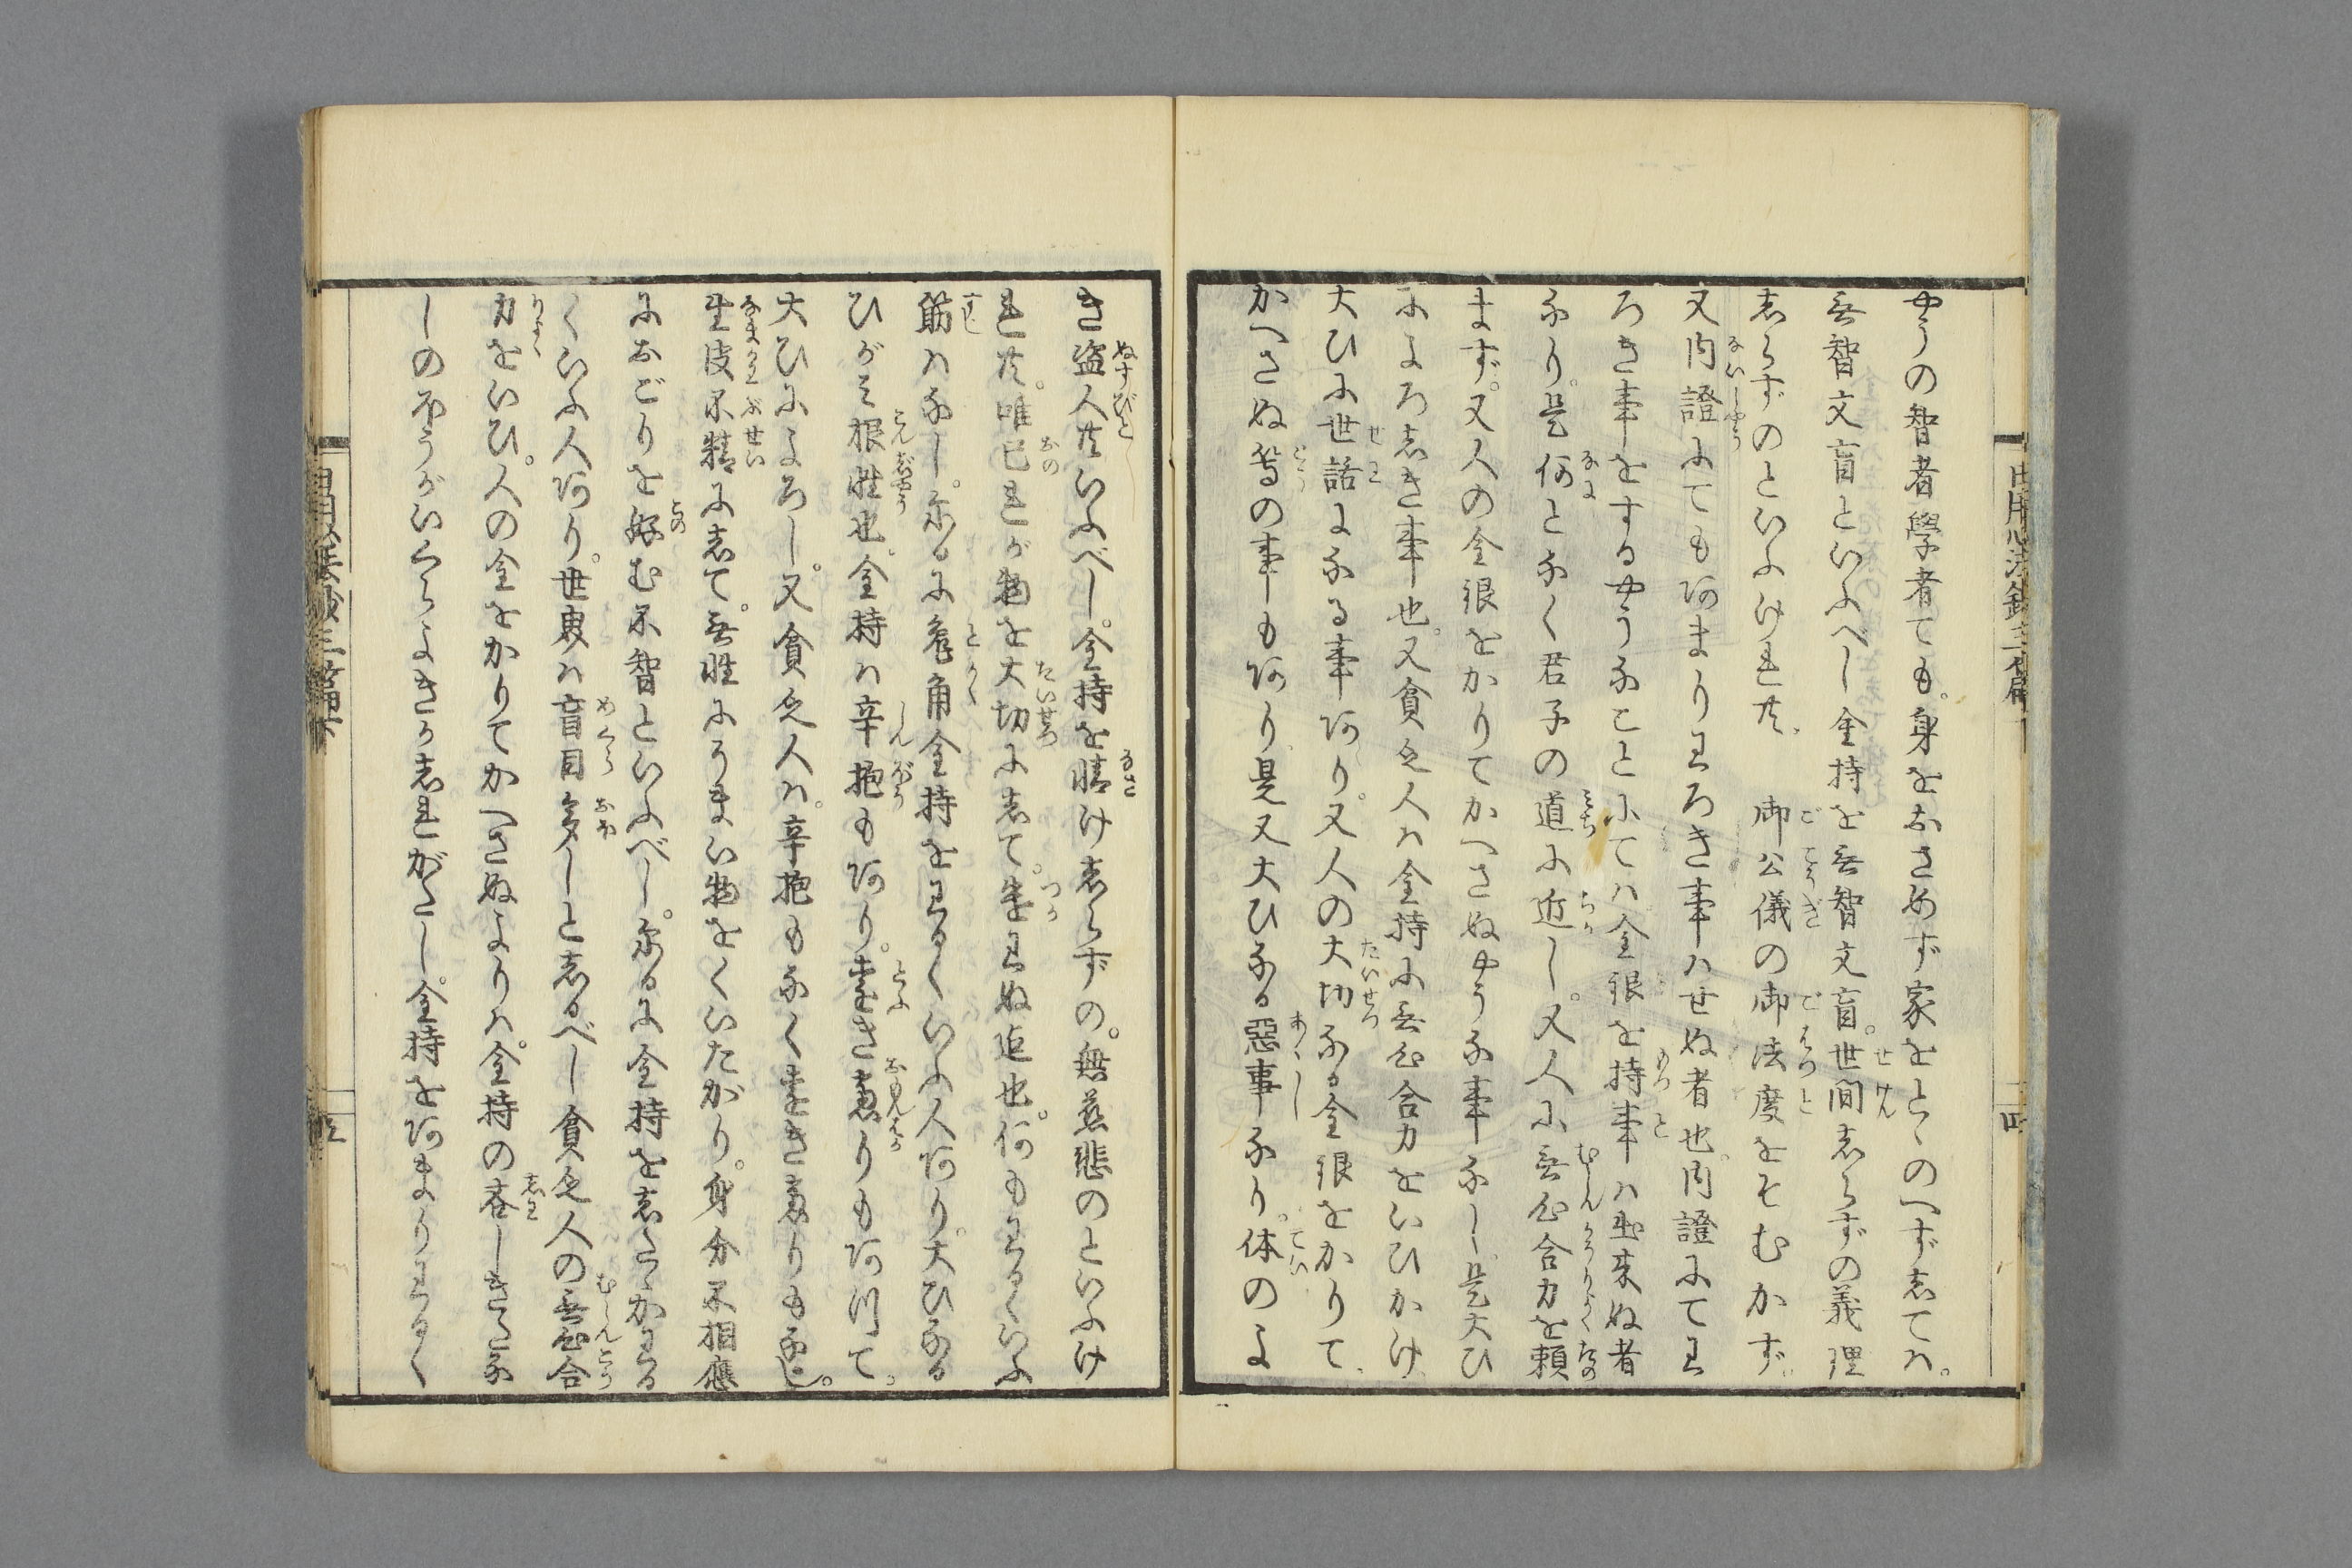 やうの智者學者ても。身をおさめず家をとゝのへず志ては。
無智文盲といふべし金持を無智文盲。世間志らずの義理
志らずのといふけれ共。御公儀の御法度をそむかず。
又内證にても阿まりわろき事はせぬ者也。内證にてわ
ろき事をするやうなことにては金銀を持事は出来ぬ者
なり。是何となく君子の道に近し。又人に無心合力を頼
まず。又人の金銀をかりてかへさぬやうな事なし。是大ひ
によろ志き事也。又貪乏人は金持に無心合力をいひかけ。
大ひに世話になる事阿り。又人の大切なる金銀をかりて。
かへさぬ等の事も阿り。是又大ひなる惡事なり。体のよ
き盗人共いふべし。金持を情け志らずの。無慈悲のといふけ
れ共。唯己れが物を大切に志て。失わぬ迄也。何もわるくいふ
筋はなし。然るに兎角金持をわるくいふ人阿り。大ひなる
ひがミ根性也。金持は辛抱も阿り。遠き慮りも阿つて。
大ひによろし。又貪乏人は。辛抱も なく遠き慮りもなし。
生皮不精に志て。無性にうまい物をくいたがり。身分不相應
におごりを好む不智といふべし。然るに金持を志たゝかわる
くいふ人阿り。世界は盲目多しと志るべし貪乏人の無心合
力をいひ。人の金をかりてかへさぬよりは。金持の吝しきたな
しのほうがいくらよきか志れがたし。金持を阿まりわるく